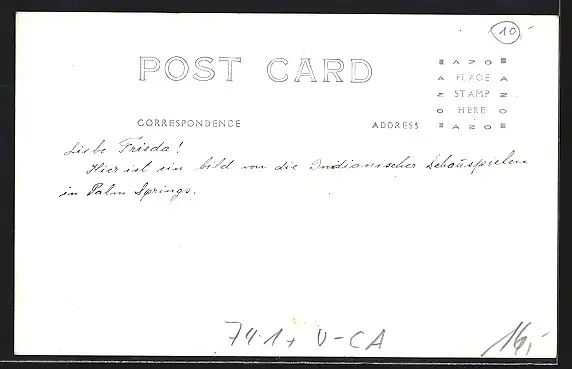 10
POST CARD
AZO
A PLACE A
Z STAMP Z
O HERE O
AZO
CORRESPONDENCE
ADDRESS
Liebe Frieda!
Hier ist ein bild von die Indianischer Schauspielern
in Palm Springs.
741+ V-CA
16,-